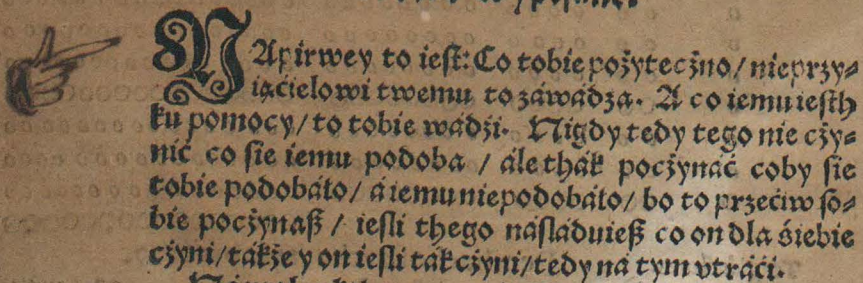 NApirwey to iest: Co tobie pożyteczno / nieprzy⸗
iaćielowi twemu to záwadza. A co iemu iesth
ku pomocy / to tobie wádzi. Nigdy tedy tego nie czy⸗
nić co sie iemu podoba / ále thák poczynáć coby sie
tobie podobáło / á iemu niepodobáło / bo to przećiw so⸗
bie poczynaß / iesli thego násláduieß co on dla śiebie
czyni / tákże y on iesli ták czyni / tedy ná tym vtráći.